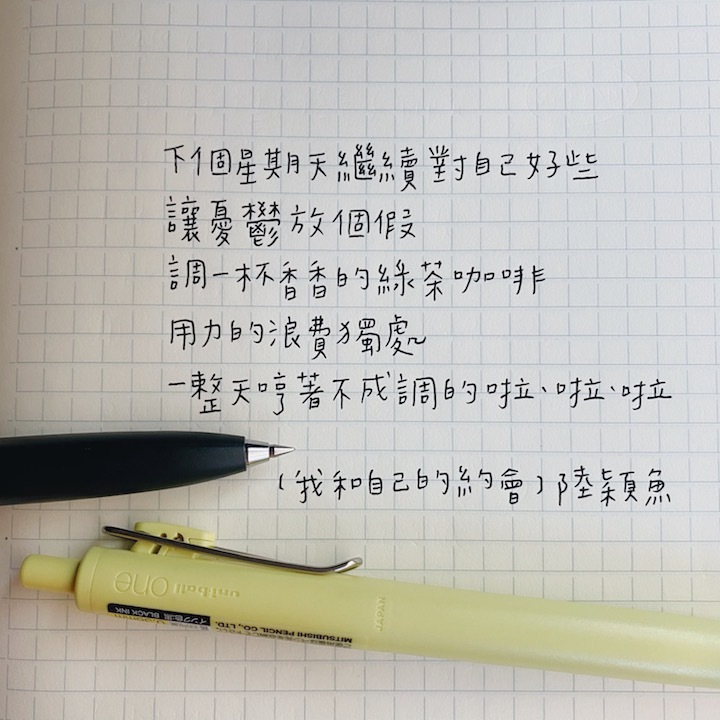 下個星期天繼續對自己好些
讓憂鬱放個假
調一杯香香的綠茶咖啡
用力的浪費獨處
一整天哼著不成調的啦、啦、啦
(我和自己的約會)陸穎魚
uniball one
JAPAN
MITSUBISHI PENCIL CO., LTD.
BLACK INK